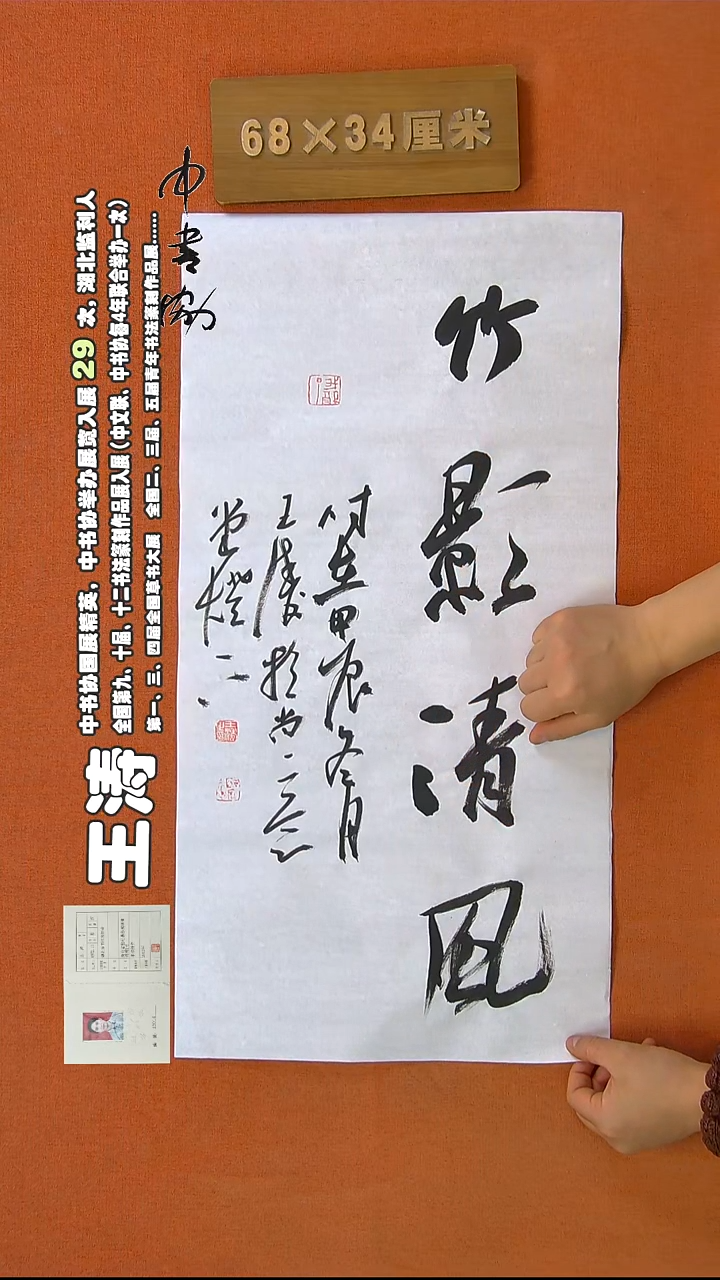 68×34厘米
中书协
竹影清风
时在甲辰冬月
王涛於尚
中书协国展精英，中书协举办展览入展 29 次，湖北监利人
全国第九、十届、十二书法篆刻作品展入展（中文联、中书协每4年联合举办一次）
第一、三、四届全国草书大展 全国二、三届、五届青年书法篆刻作品展……
王涛